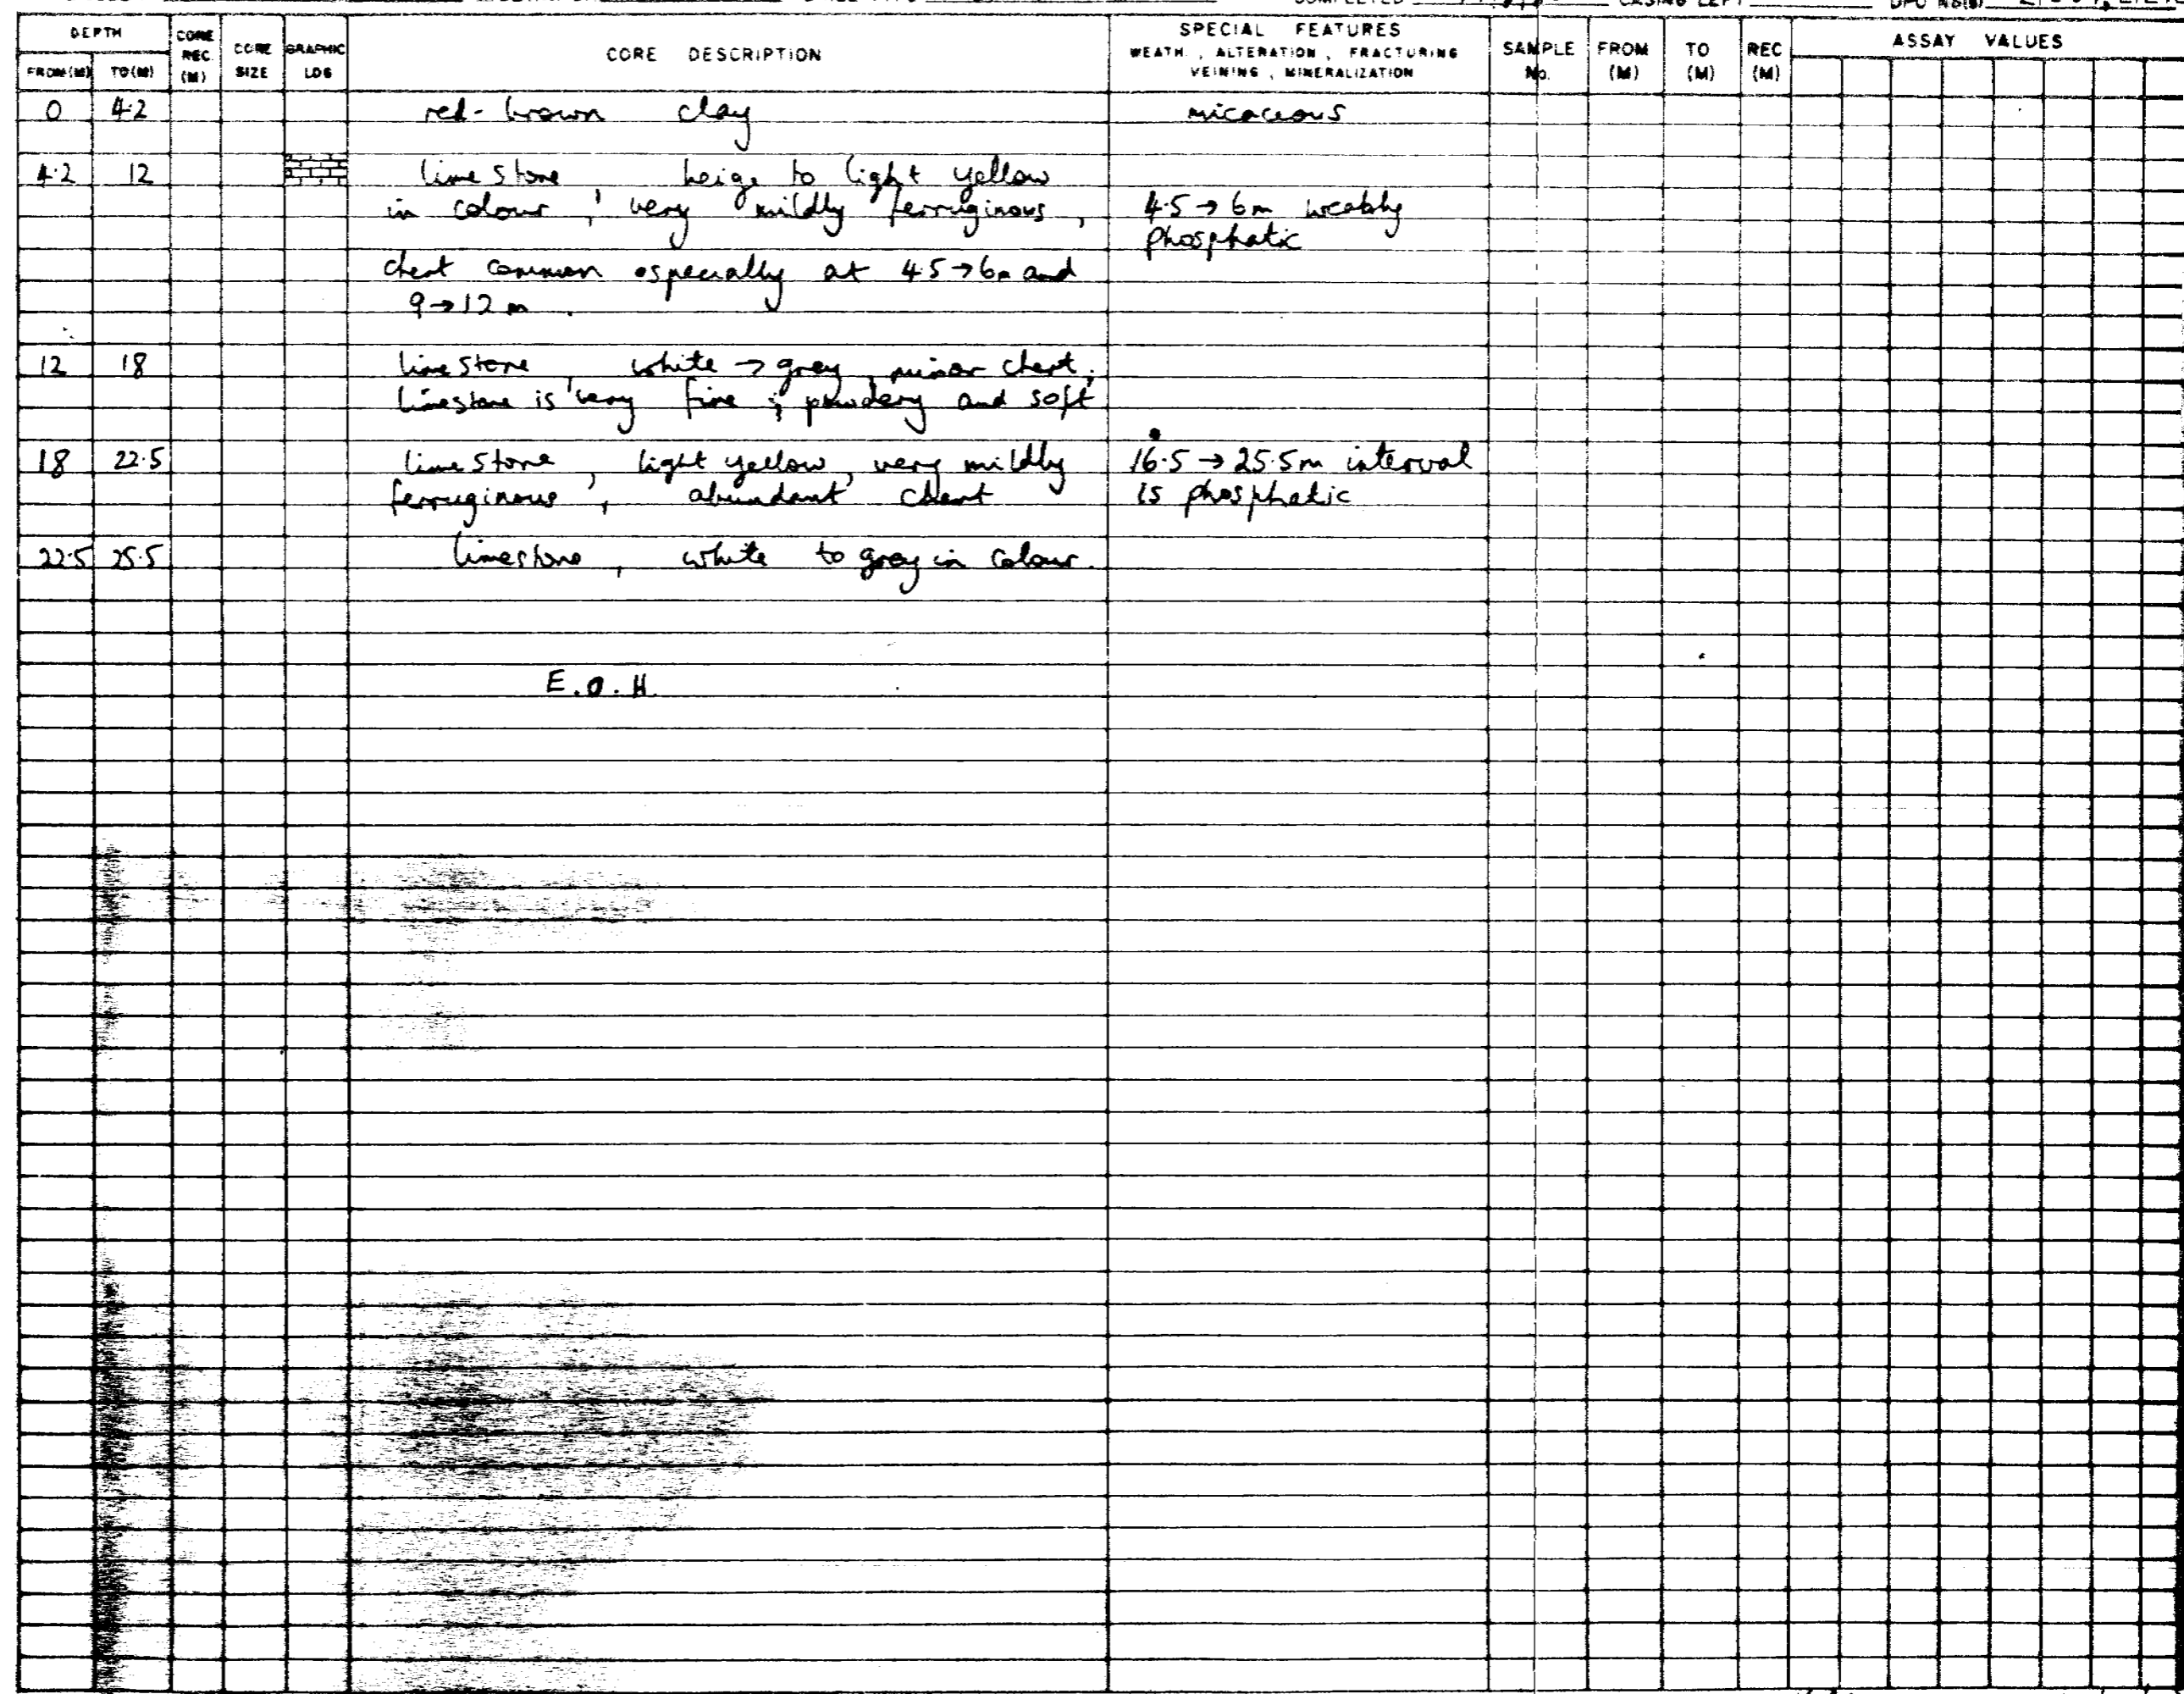 COMPLETED CASING LEFT DPO No(s)
DEPTH
FROM (M) TO (M)
CORE REC. (M)
CORE SIZE
GRAPHIC LOG
CORE DESCRIPTION
SPECIAL FEATURES
WEATH., ALTERATION, FRACTURING
VEINING, MINERALIZATION
SAMPLE No.
FROM (M)
TO (M)
REC (M)
ASSAY VALUES
0 4.2 red-brown clay micaceous
4.2 12 limestone beige to light yellow
in colour, very mildly ferruginous, 4.5 → 6m weakly
phosphatic
chert common especially at 4.5 → 6m and
9 → 12 m.
12 18 limestone, white → grey, minor chert;
limestone is very fine; powdery and soft
18 22.5 limestone, light yellow, very mildly 16.5 → 25.5m interval
ferruginous, abundant chert is phosphatic
22.5 25.5 limestone, white to grey in colour.
E.O.H.